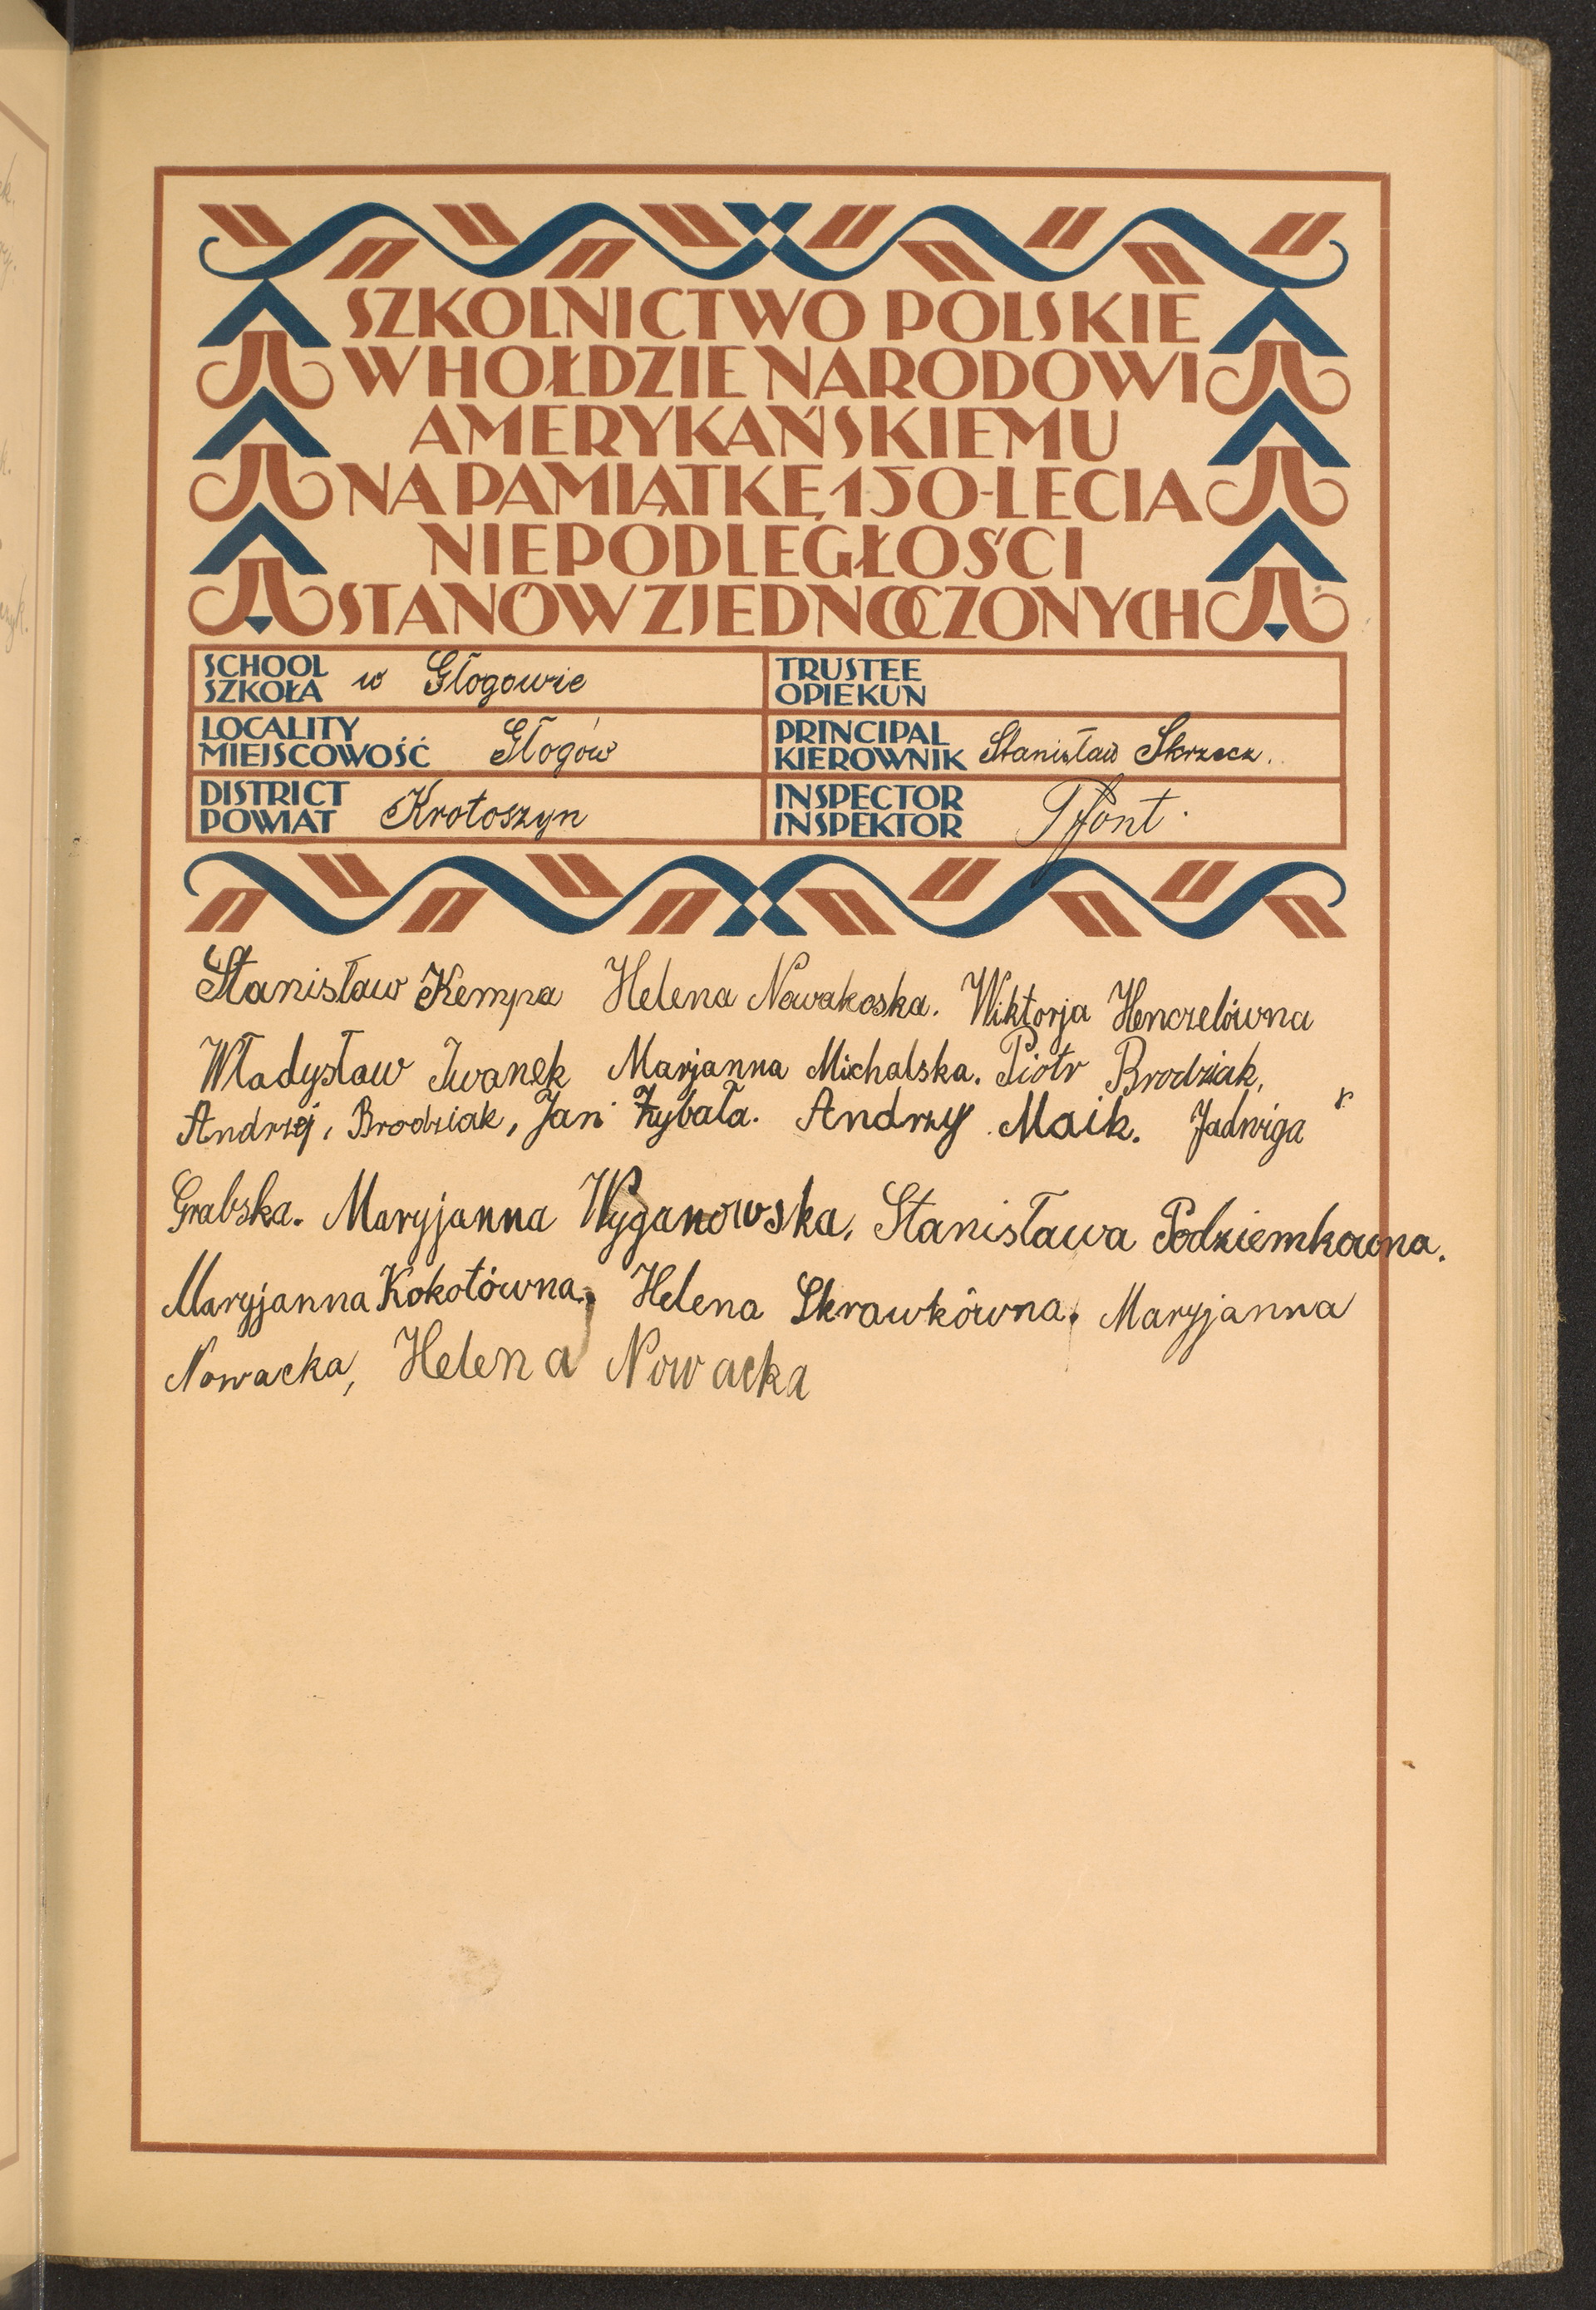 SZKOLNICTWO POLSKIE
W HOŁDZIE NARODOWI
AMERYKAŃSKIEMU
NA PAMIĄTKĘ 150-LECIA
NIEPODLEGŁOŚCI
STANÓW ZJEDNOCZONYCH
SCHOOL
SZKOŁA w Głogowie
TRUSTEE
OPIEKUN
LOCALITY
MIEJSCOWOŚĆ Głogów
PRINCIPAL
KIEROWNIK Stanisław Skrzecz.
DISTRICT
POWIAT Krotoszyn
INSPECTOR
INSPEKTOR
Stanisław Kempa Helena Nowakoska. Wiktorja Henczelówna
Władysław Iwanek Marjanna Michalska. Piotr Brodziak,
Andrzej, Brodziak, Jan Zybała. Andrzy Maik. Jadwiga
Grabska. Maryjanna Wyganowska, Stanisława Podziemkowna.
Maryjanna Kokotówna, Helena Skrawkówna, Maryjanna
Nowacka, Helena Nowacka